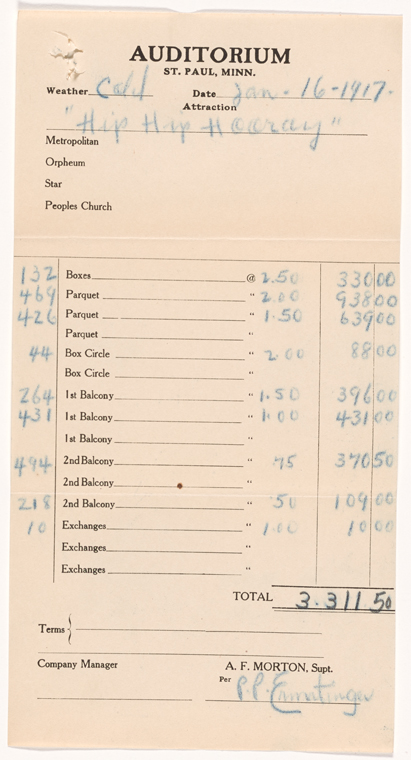 AUDITORIUM
ST. PAUL, MINN.
Weather Cold Date Jan - 16 - 1917 -
Attraction
"Hip Hip Hooray"
Metropolitan
Orpheum
Star
Peoples Church
132 Boxes @ 2.50 330 00
469 Parquet " 2.00 938 00
426 Parquet " 1.50 639 00
Parquet "
44 Box Circle " 2.00 88 00
Box Circle "
264 1st Balcony " 1.50 396 00
431 1st Balcony " 1.00 431 00
1st Balcony "
494 2nd Balcony " 75 370 50
2nd Balcony "
218 2nd Balcony " 50 109 00
10 Exchanges " 1.00 10 00
Exchanges "
Exchanges "
TOTAL 3.311 50
Terms
Company Manager A. F. MORTON, Supt.
Per P.P. Ermatinger